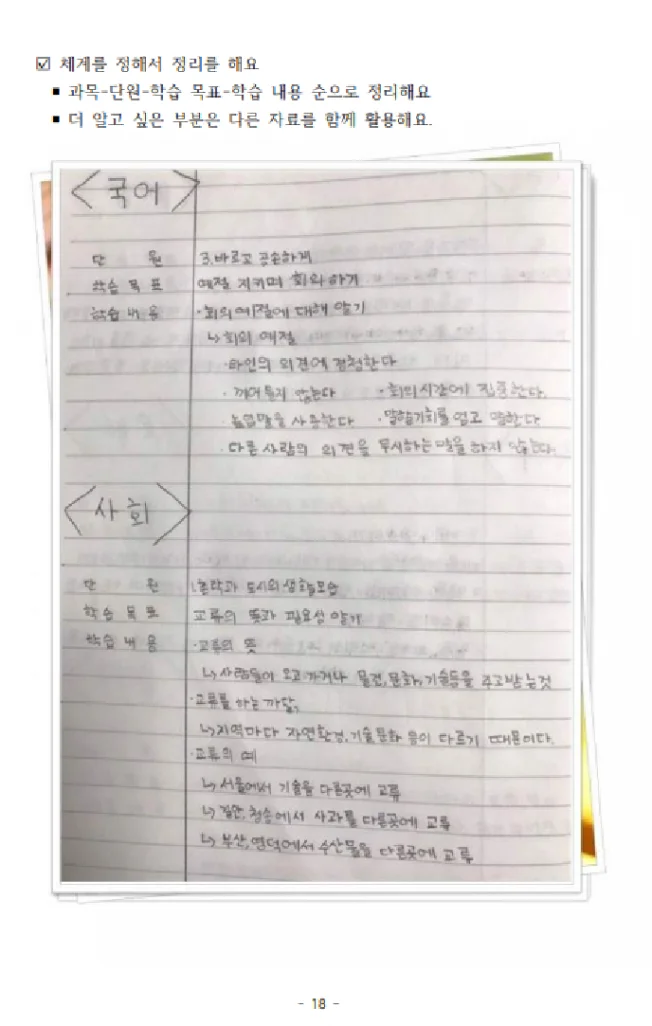 ☑ 체계를 정해서 정리를 해요
▪ 과목-단원-학습 목표-학습 내용 순으로 정리해요
▪ 더 알고 싶은 부분은 다른 자료를 함께 활용해요.
<국어>
단 원 3.바르고 공손하게
학습 목표 예절 지키며 회의 하기
학습 내용 ·회의 예절에 대해 알기
↳회의 예절
·타인의 의견에 경청한다
·끼어들지 않는다 ·회의시간에 집중한다.
·높임말을 사용한다 ·말할기회를 얻고 말한다
·다른 사람의 의견을 무시하는 말을 하지 않는다.
<사회>
단 원 1.촌락과 도시의 생활모습
학습 목표 교류의 뜻과 필요성 알기
학습 내용 ·교류의 뜻
↳사람들이 오고 가거나 물건,문화,기술등을 주고받는것
·교류를 하는 까닭,
↳지역마다 자연환경,기술문화 등이 다르기 때문이다.
·교류의 예
↳서울에서 기술을 다른곳에 교류
↳ 청송에서 사과를 다른곳에 교류
↳부산,영덕에서 수산물을 다른곳에 교류
- 18 -